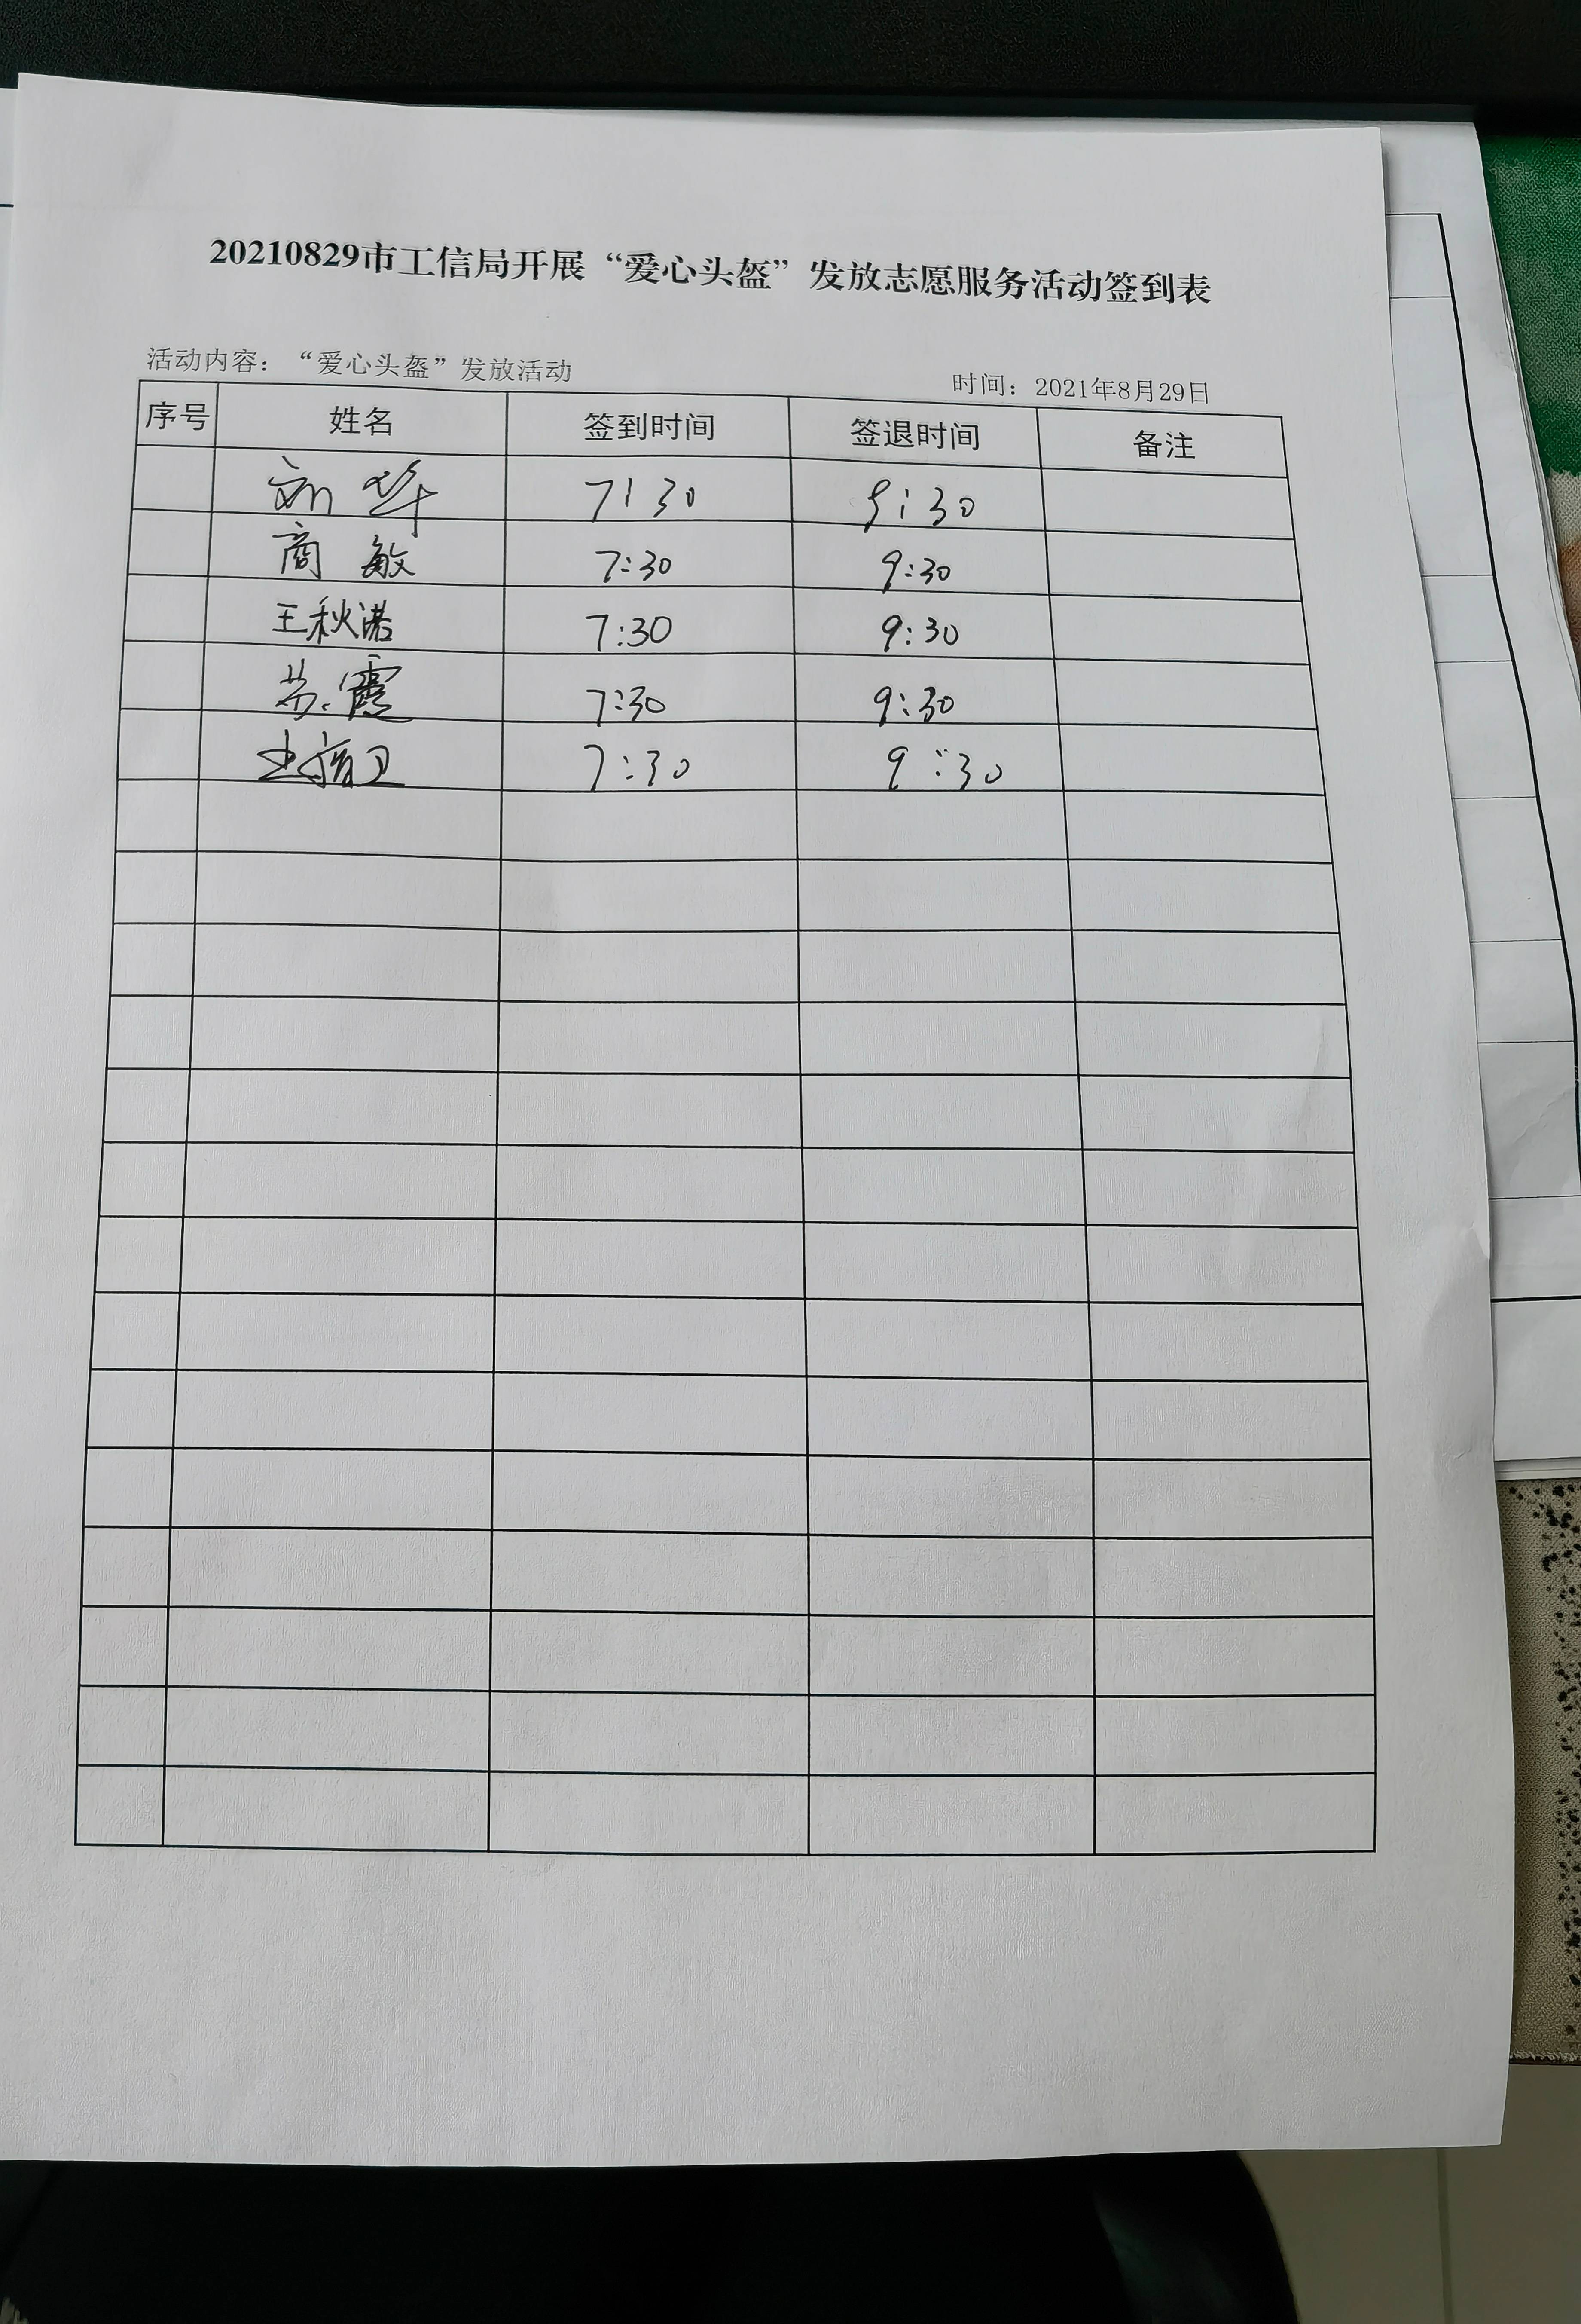 20210829市工信局开展“爱心头盔”发放志愿服务活动签到表
活动内容：“爱心头盔”发放活动
时间：2021年8月29日
序号 姓名 签到时间 签退时间 备注
刘华 7:30 9:30
商敏 7:30 9:30
王秋诺 7:30 9:30
苏霞 7:30 9:30
7:30 9:30